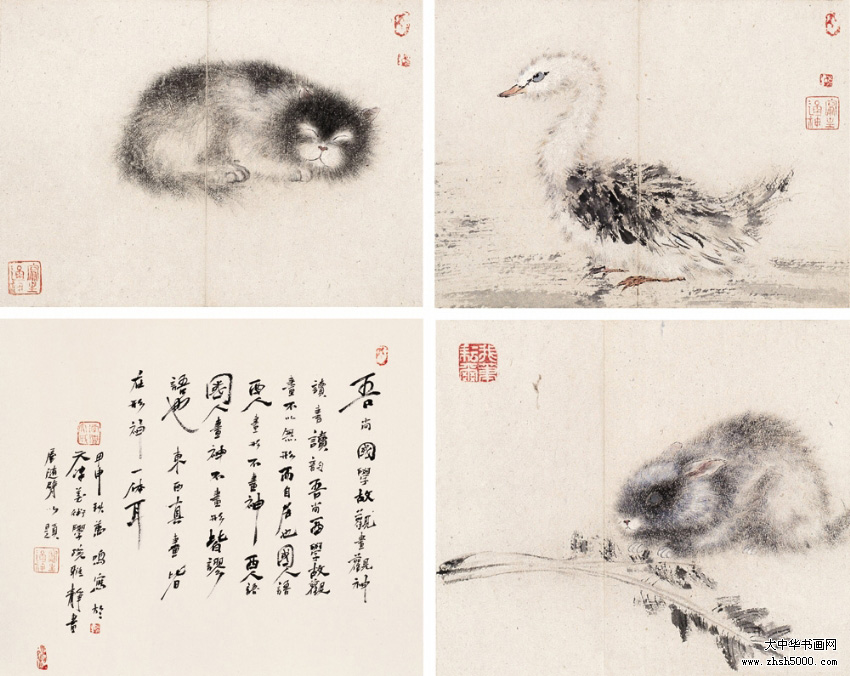 吾尚國學故觀畫觀神
讀書讀韵吾尚西學故觀
畫不以無形而自居也國人語
西人畫形不畫神西人語
國人畫神不畫形皆謬
語也東西真畫皆
在形神一体耳
甲申秋 鳴寫於
天津美術學院雅靜畫
居 題
大中华书画网
www.zhsh5000.com